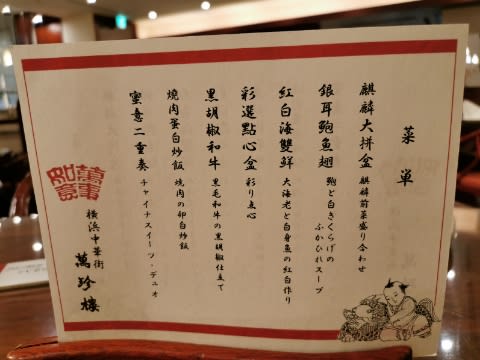 菜単
麒麟大拼盆 麒麟前菜盛り合わせ
銀耳鮑魚翅 鮑と白きくらげの
ふかひれスープ
紅白海雙鮮 大海老と白身魚の紅白作り
彩選點心盆 彩り点心
黒胡椒和牛 黒毛和牛の黒胡椒仕立て
燒肉蛋白炒飯 焼肉の卵白炒飯
蜜意二重奏 チャイナスイーツ・デュオ
横浜中華街 萬珍樓